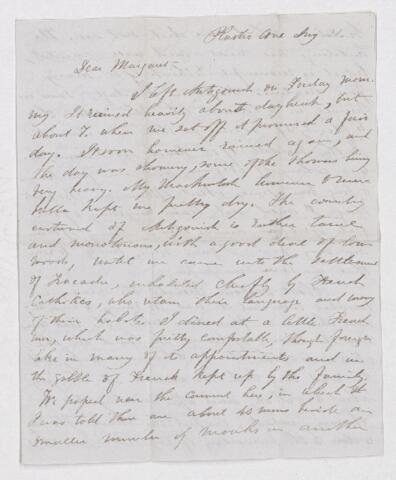 Plaster Cove
Dear Margaret -
I left Antigonish on Friday morn
ing. It rained heavily about daybreak, but
about 7 when we set off it promised a fair
day. It soon however rained again, and
the day was showery, some of the showers being
very heavy. My Mackintosh however & um
brella kept me pretty dry. The country
eastward of Antigonish is rather tame
and monotonous, with a good deal of low
woods, until we came unto the settlement
of Tracadie, inhabited chiefly by French
Catholics, who retain their language and many
of their habits. I dined at a little French
inn, which was pretty comfortable, though foreign
like in many of its appointments and in
the gabble of French kept up by the family.
We passed near the convent here, in which
I was told there are about 40 nuns beside a
smaller number of monks in another